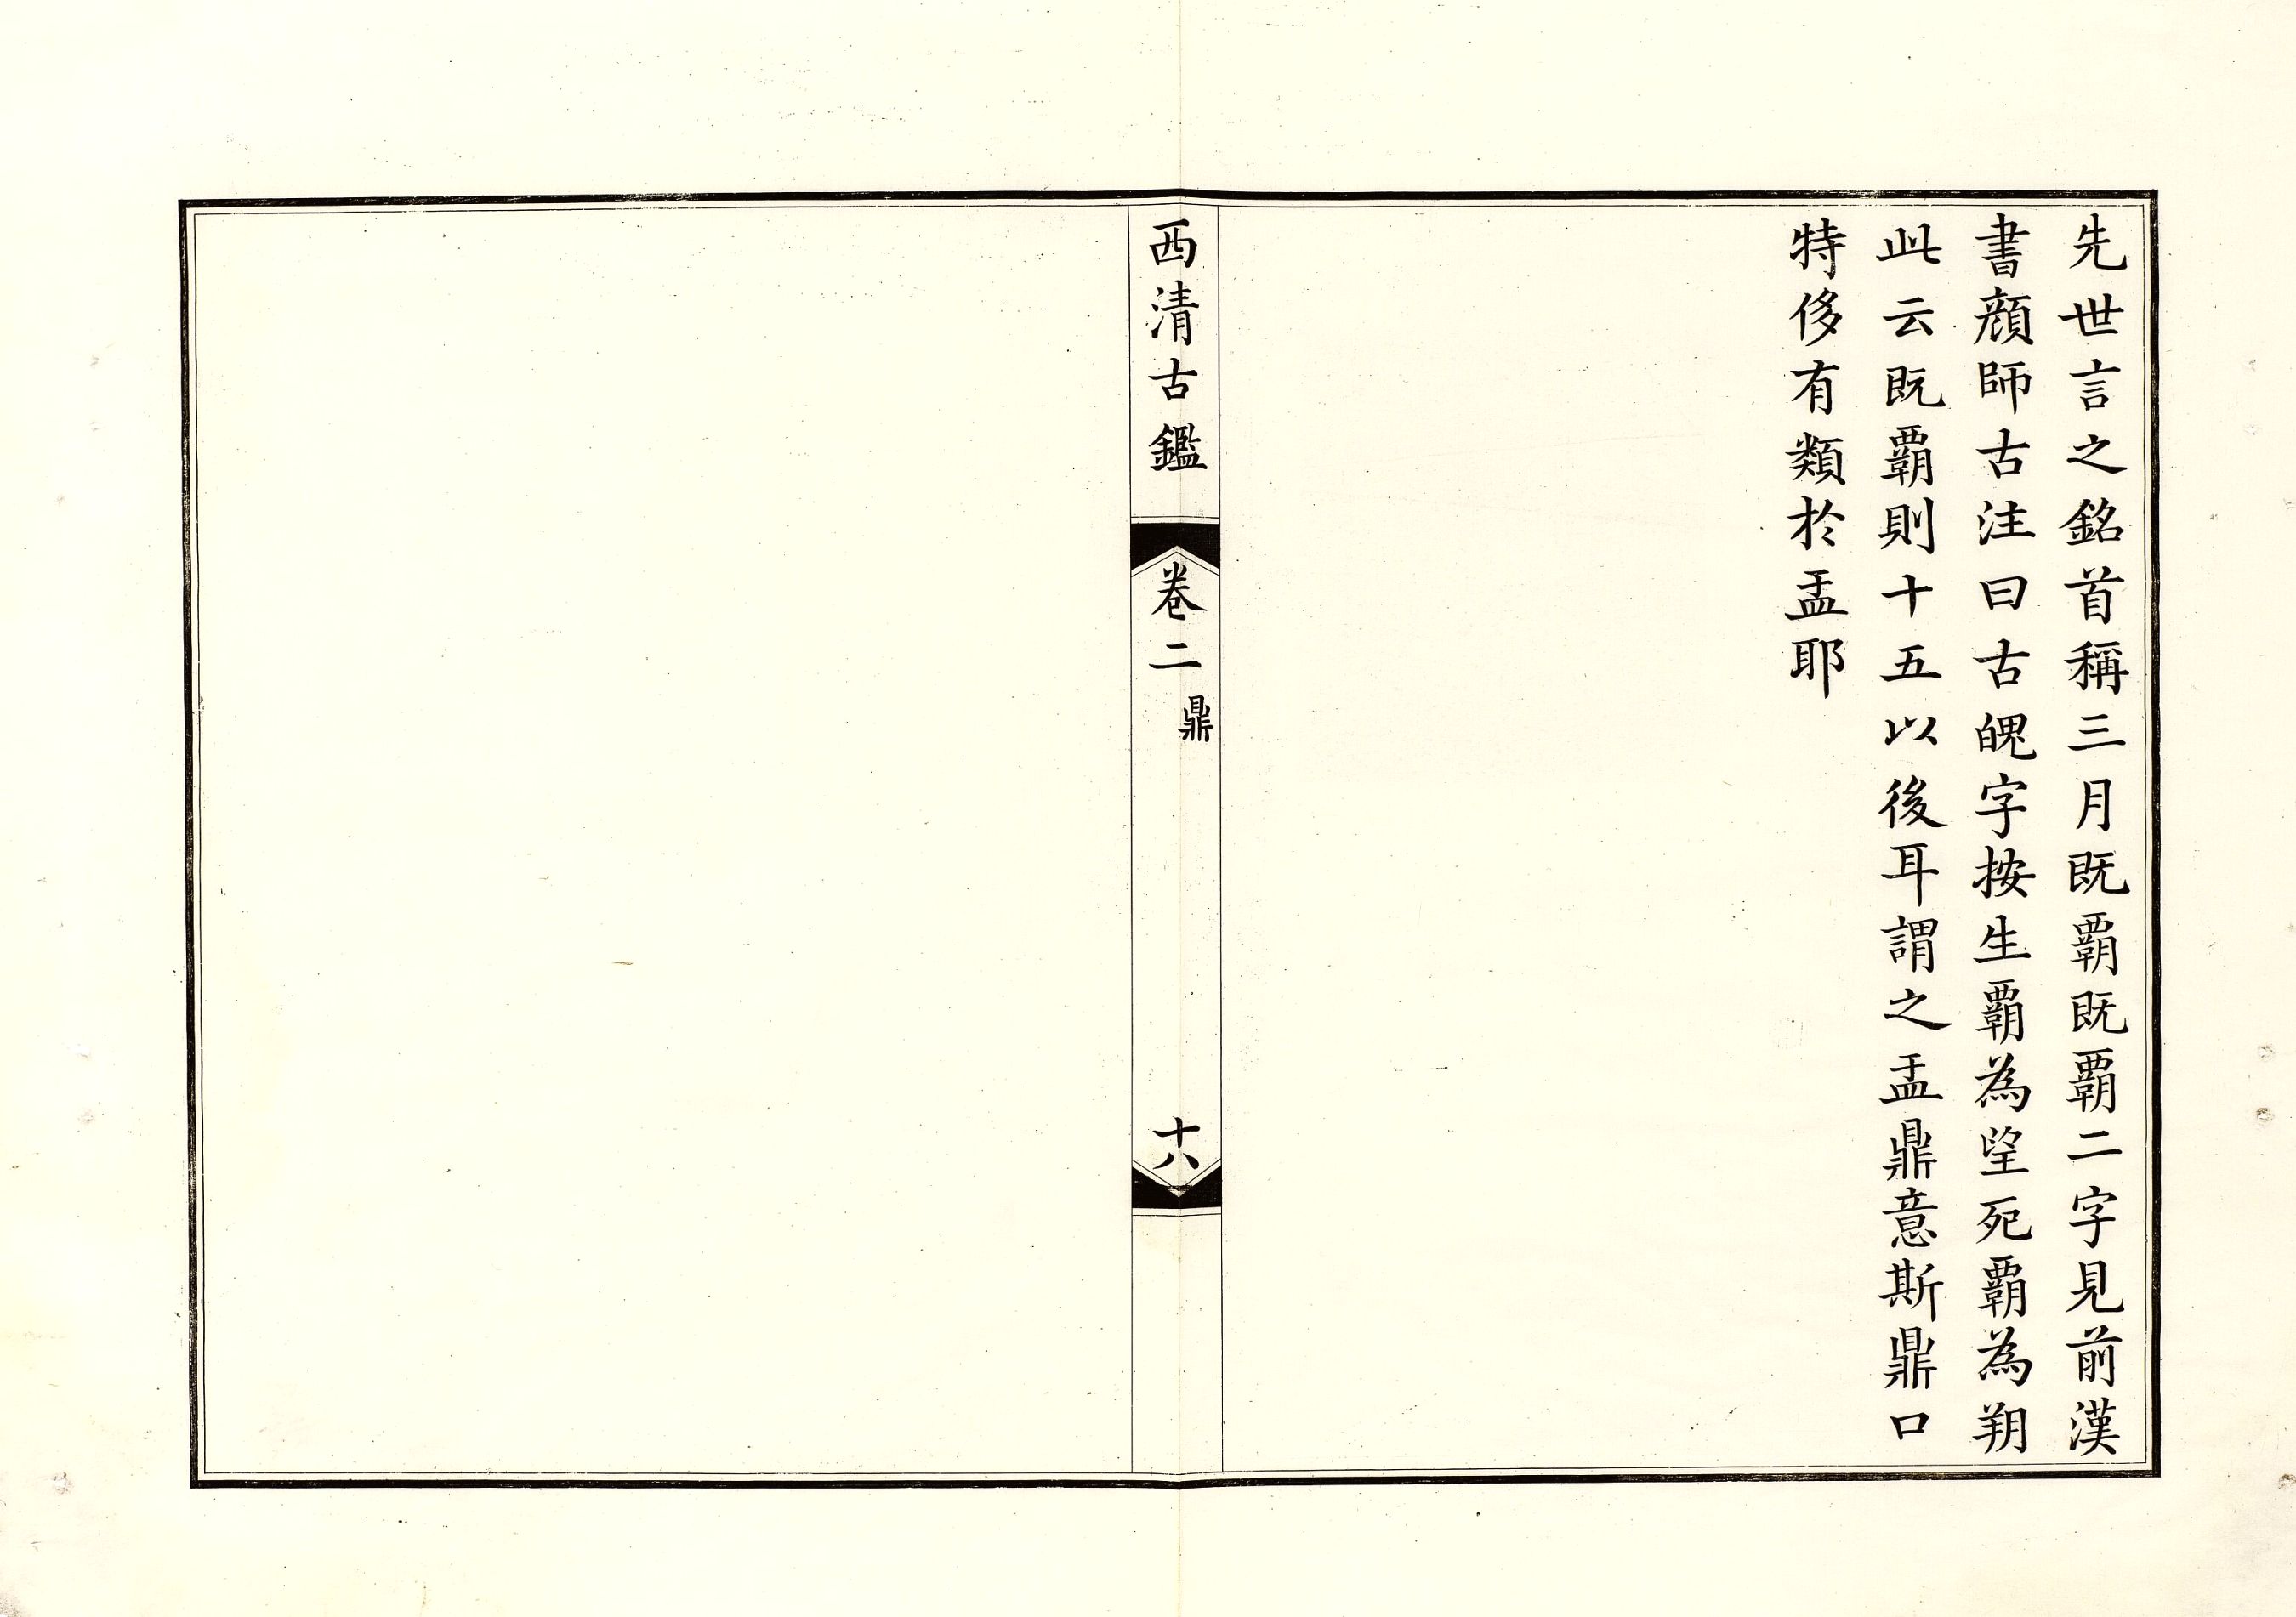 先世言之銘首稱三月既覇既覇二字見前漢
書顔師古注曰古䰟字按生覇為望死覇為朔
此云既覇則十五以後耳謂之盂鼎意斯鼎口
特侈有類於盂耶
西清古鑑
卷二
鼎
十八